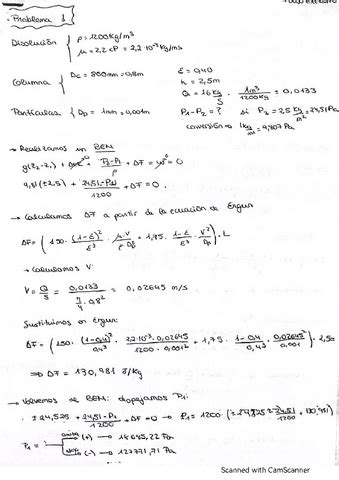 Problema 1
Disolución { ρ = 1200 kg/m³
μ = 2,2 cP = 2,2·10⁻³ kg/ms
Columna { Dc = 800mm = 0,8m
h = 2,5m
Partículas { Dp = 1mm = 0,001m
ε = 0,40
Q = 16 kg/s · 1m³/1200kg = 0,0133
P1-P2 = ? si P2 = 2,5 kg/m² = 24,51 Pa
conversión → 1kg/m² = 9,807 Pa
→ Realizamos un BEM:
g(z2-z1) + + P2-P1/ρ + ΔF = W = 0
9,81 (±2,5) + 24,51-P1/1200 + ΔF = 0.
→ Calculamos ΔF a partir de la ecuación de Ergun
ΔF = (150 · (1-ε)²/ε³ · μ·V/ρ·Dp² + 1,75 · 1-ε/ε³ · V²/Dp) · L
→ Calculamos V:
V = Q/S = 0,0133/(π/4 · 0,8²) = 0,02645 m/s
Sustituimos en Ergun:
ΔF = (150 · (1-0,4)²/0,4³ · 2,2·10⁻³ · 0,02645/1200 · 0,001² + 1,75 · 1-0,4/0,4³ · 0,02645²/0,001) · 2,5
⇒ ΔF = 130,981 J/kg
→ Volvemos a BEM: despejamos P1:
± 24,525 + 24,51-P1/1200 + ΔF = 0 → P1 = 1200 (± 24,525 + 24,51/1200 + 130,981)
P1 = (+) → 186 Pa
(-) → 127771,71 Pa
Scanned with CamScanner